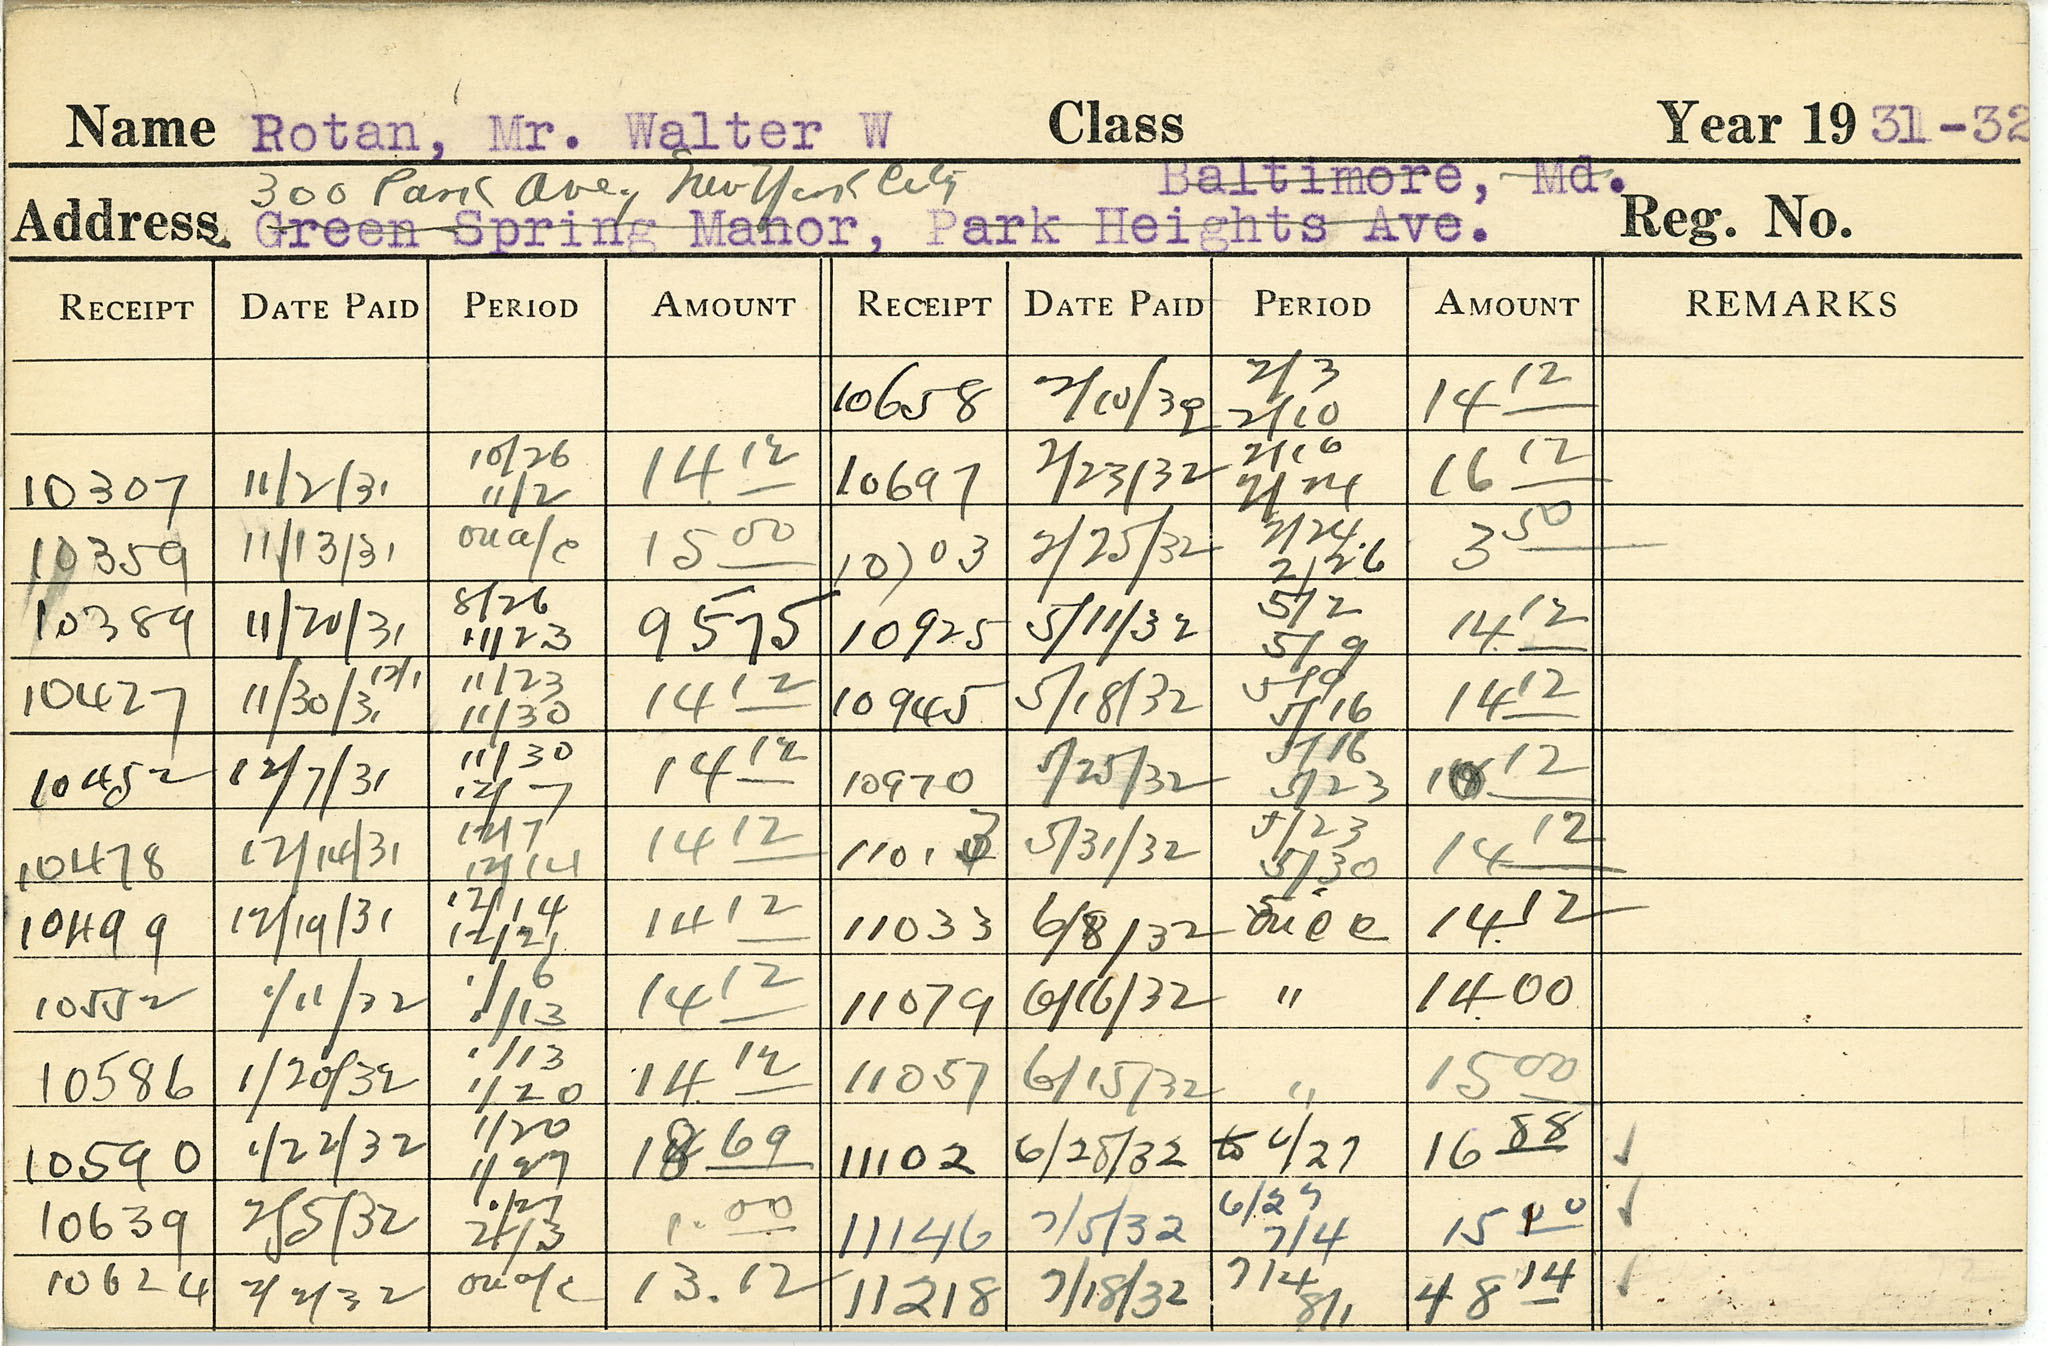 Name Rotan, Mr. Walter W Class Year 19 31-32
300 Park Ave, New York City Baltimore, Md.
Address Green Spring Manor, Park Heights Ave. Reg. No.
RECEIPT DATE PAID PERIOD AMOUNT RECEIPT DATE PAID PERIOD AMOUNT REMARKS
10658 2/10/32 2/3 2/10 14 12
10307 11/2/31 10/26 11/2 14 12 10697 2/23/32 2/10 2/24 16 12
10359 11/13/31 on a/c 15 00 10703 2/25/32 2/24 2/26 3 50
10389 11/20/31 8/26 11/23 95 75 10925 5/11/32 5/2 5/9 14 12
10427 11/30/31 12/1 11/23 11/30 14 12 10945 5/18/32 5/9 5/16 14 12
10452 12/7/31 11/30 12/7 14 12 10970 5/25/32 5/16 5/23 12
10478 12/14/31 12/7 12/14 14 12 11013 5/31/32 5/23 5/30 14 12
10499 12/19/31 12/14 12/21 14 12 11033 6/8/32 14.12
10552 1/11/32 1/6 1/13 14 12 11079 6/16/32 " 14.00
10586 1/20/32 1/13 1/20 14 12 11057 6/15/32 " 15 00
10590 1/22/32 1/20 1/27 18 69 11102 6/28/32 to 6/27 16 88 ✓
10639 2/5/32 1/27 2/3 1.00 11146 7/5/32 6/27 7/4 15 00 ✓
10624 2/2/32 on a/c 13.12 11218 7/18/32 7/4 8/1 48 14 ✓